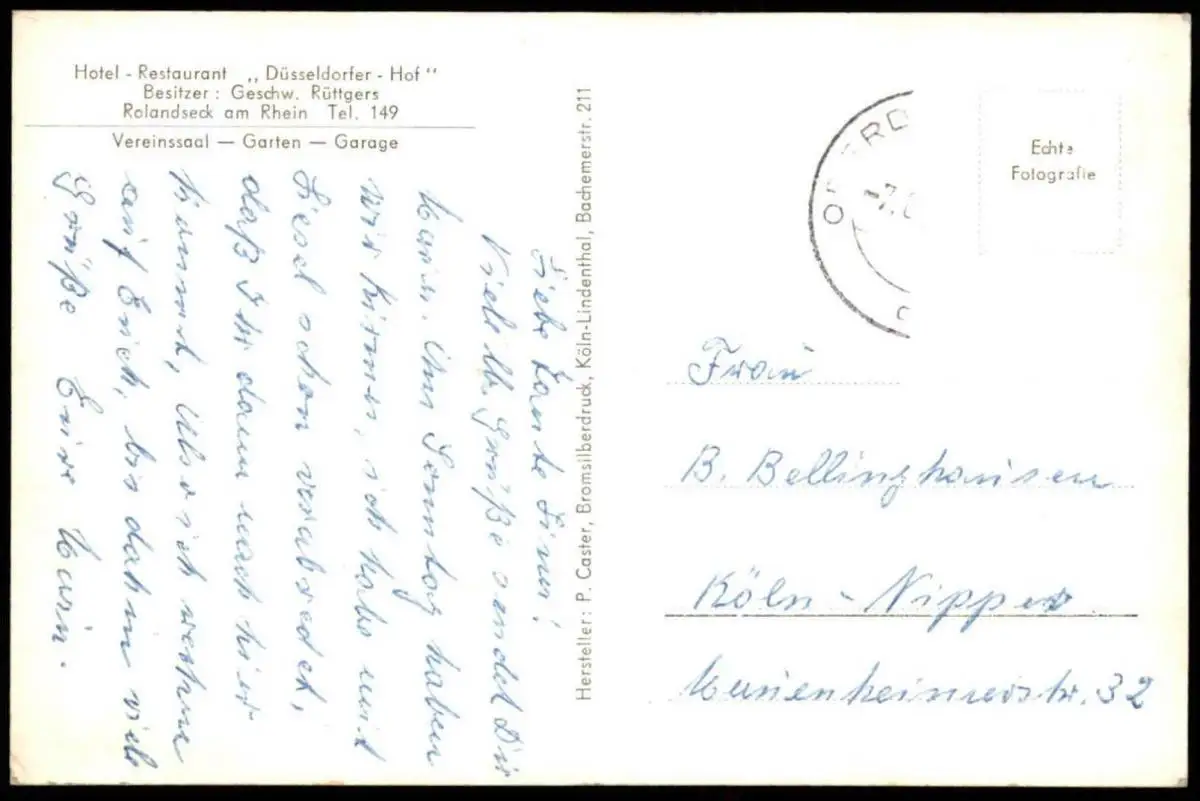 Hotel - Restaurant „Düsseldorfer - Hof“
Besitzer : Geschw. Rüttgers
Rolandseck am Rhein Tel. 149
Vereinssaal — Garten — Garage
Liebe Tante Finn!
Viele lb. Grüße sendet Dir
Karin. Am Sonntag haben
wir Kirmes, ich habe mit
Liesel schon verabredet,
daß Ihr dann nach hier
kommt, Also ich rechne
auf Euch, bis dahin viele
Grüße Eure Karin.
Hersteller : P. Caster, Bromsilberdruck, Köln-Lindenthal, Bachemerstr. 211
Echte
Fotografie
Frau
B. Bellinghausen
Köln - Nippes
32